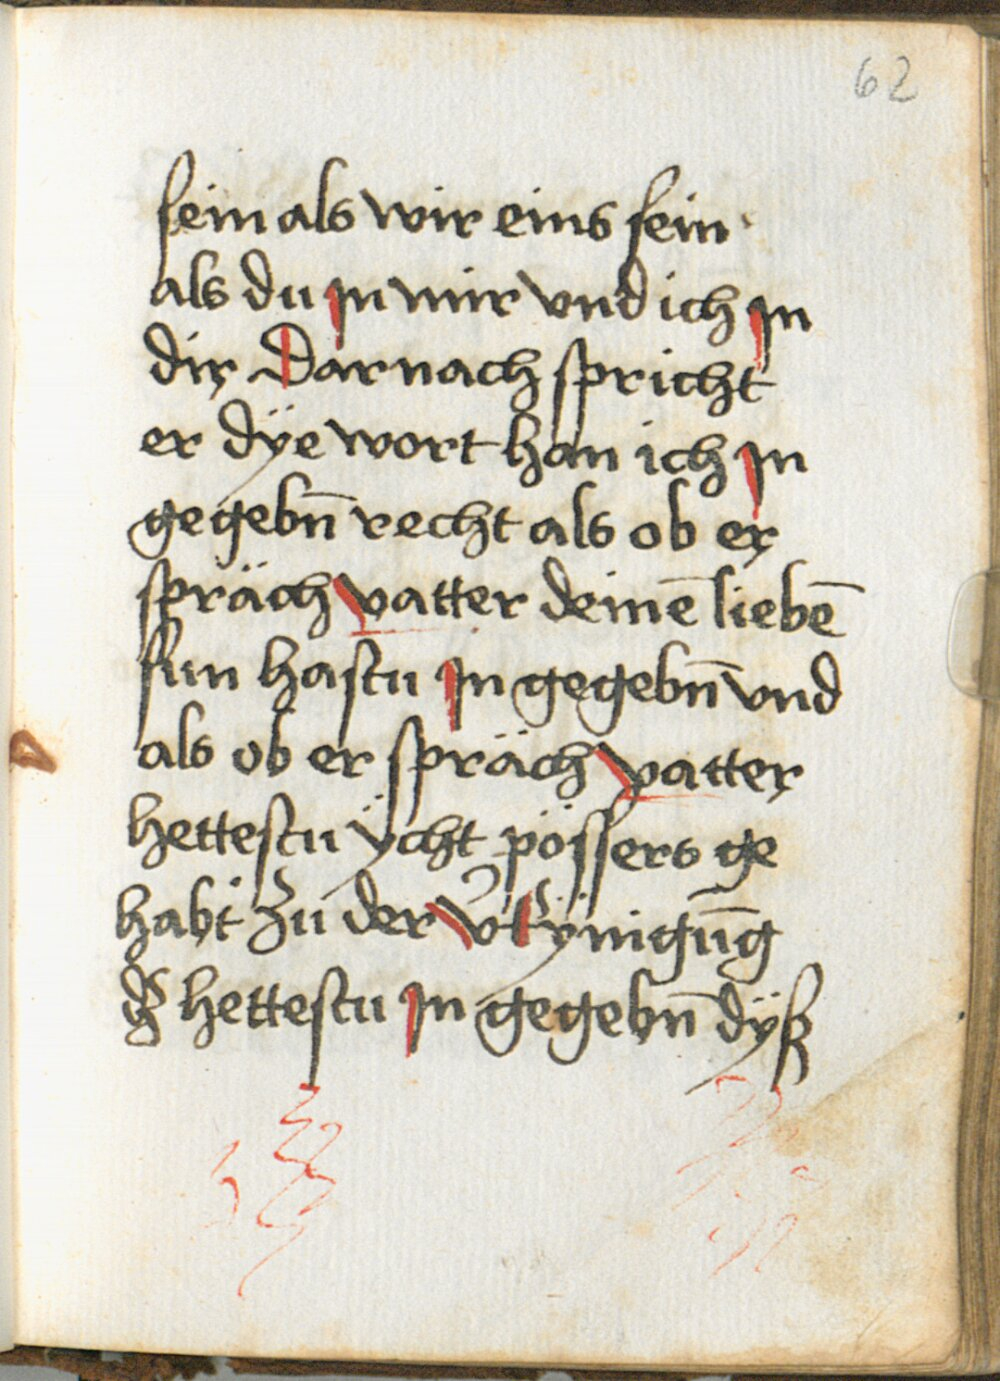 62
sein als wir eins sein
als du jn mir vnd ich jn
dir Darnach spricht
er dÿe wort han ich jn
gegebn̄ recht als ob er
spräch vatter deinē liebē
sun hastu jn gegebn̄ vnd
als ob er spräch vatter
hettestu ÿcht pössers ge
habt zu der v̾eÿnigūg
dz hettestu jn gegebn̄ dÿß